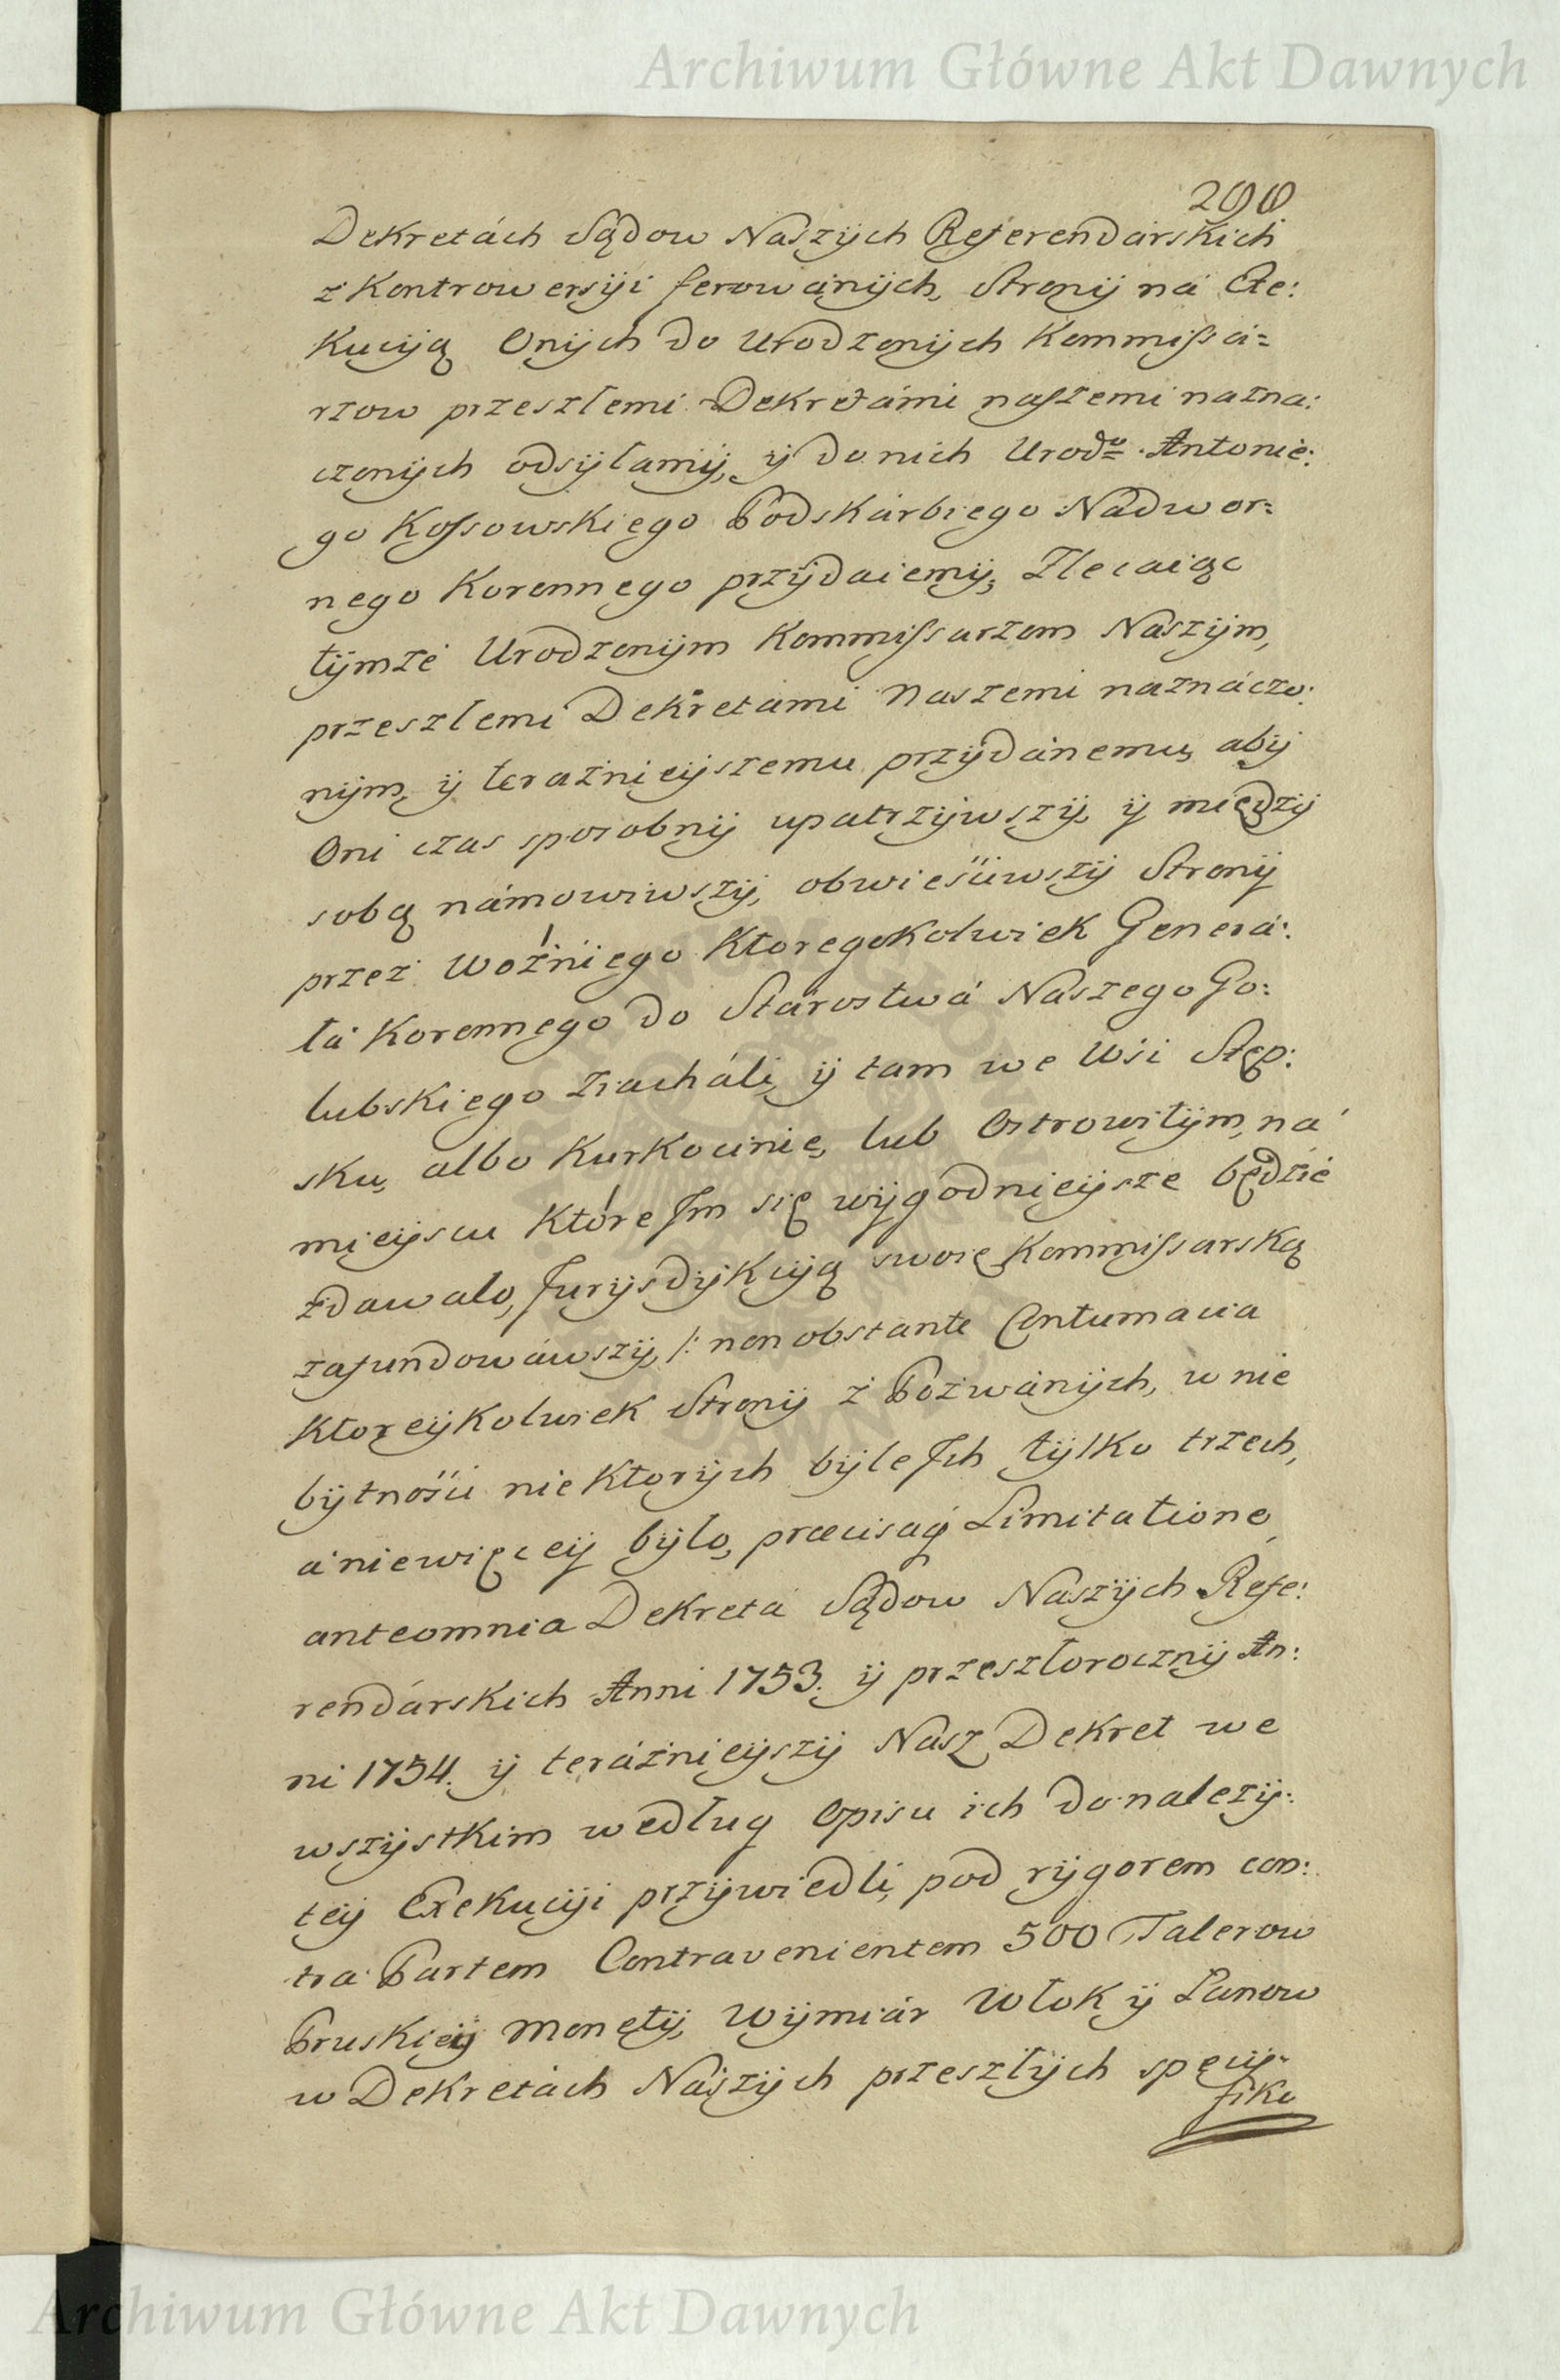 Archiwum Główne Akt Dawnych
290
Dekretách Sądow Naszych Referendárskich
z Kontrowersyi ferowánych, Strony ná Exe:
Kucyią Onych do Urodzonych Kommissá=
rzow przeszłemi Dekretámi naszemi nazna:
czonych odsyłamy, y do nich Urodo Antonie:
go Kossowskiego Podskárbiego Nadwor:
nego Koronnego przydaiemy, Zlecaiąc
tymże Urodzonym Kommissarzom Naszym,
przeszłemi Dekretami Naszemi naznáczo:
nym, y teraznieyszemu przydánemu, aby
Oni czas sposobny upatrzywszy, y między
sobą námowiwszy, obwieściwszy Strony
przez Woźniego Ktoregokolwiek Generá:
łá Koronnego do Stárostwá Nászego Go:
lubskiego ziacháli, y tam we Wśi Stęp:
sku, albo Kurkocinie, lub Ostrowitym, ná
mieyscu Które Im się wygodnieysze będzie
zdawało, Jurysdykcyią swoię Kommissarską
zafundowáwszy, /: non obstante Contumacia
Ktoreykolwiek Strony z Pozwánych, w nie
bytnośći niektorych byle Ich tylko trzech,
á niewięcey było, præcisaq Limitatione
anteomnia Dekretá Sądow Naszych Refe:
rendárskich Anni 1753. y przeszłoroczny An:
ni 1754. y teráźnieyszy Nasz Dekret we
wszystkim według Opisu ich do nalezy:
tey Exekucyi przywiedli, pod rygorem con:
tra Partem Contravenientem 500 Talerow
Pruskiey Monety, Wymiár Włok y Łanow
w Dekretách Nászych przeszłych specy-
fiko
Archiwum Główne Akt Dawnych